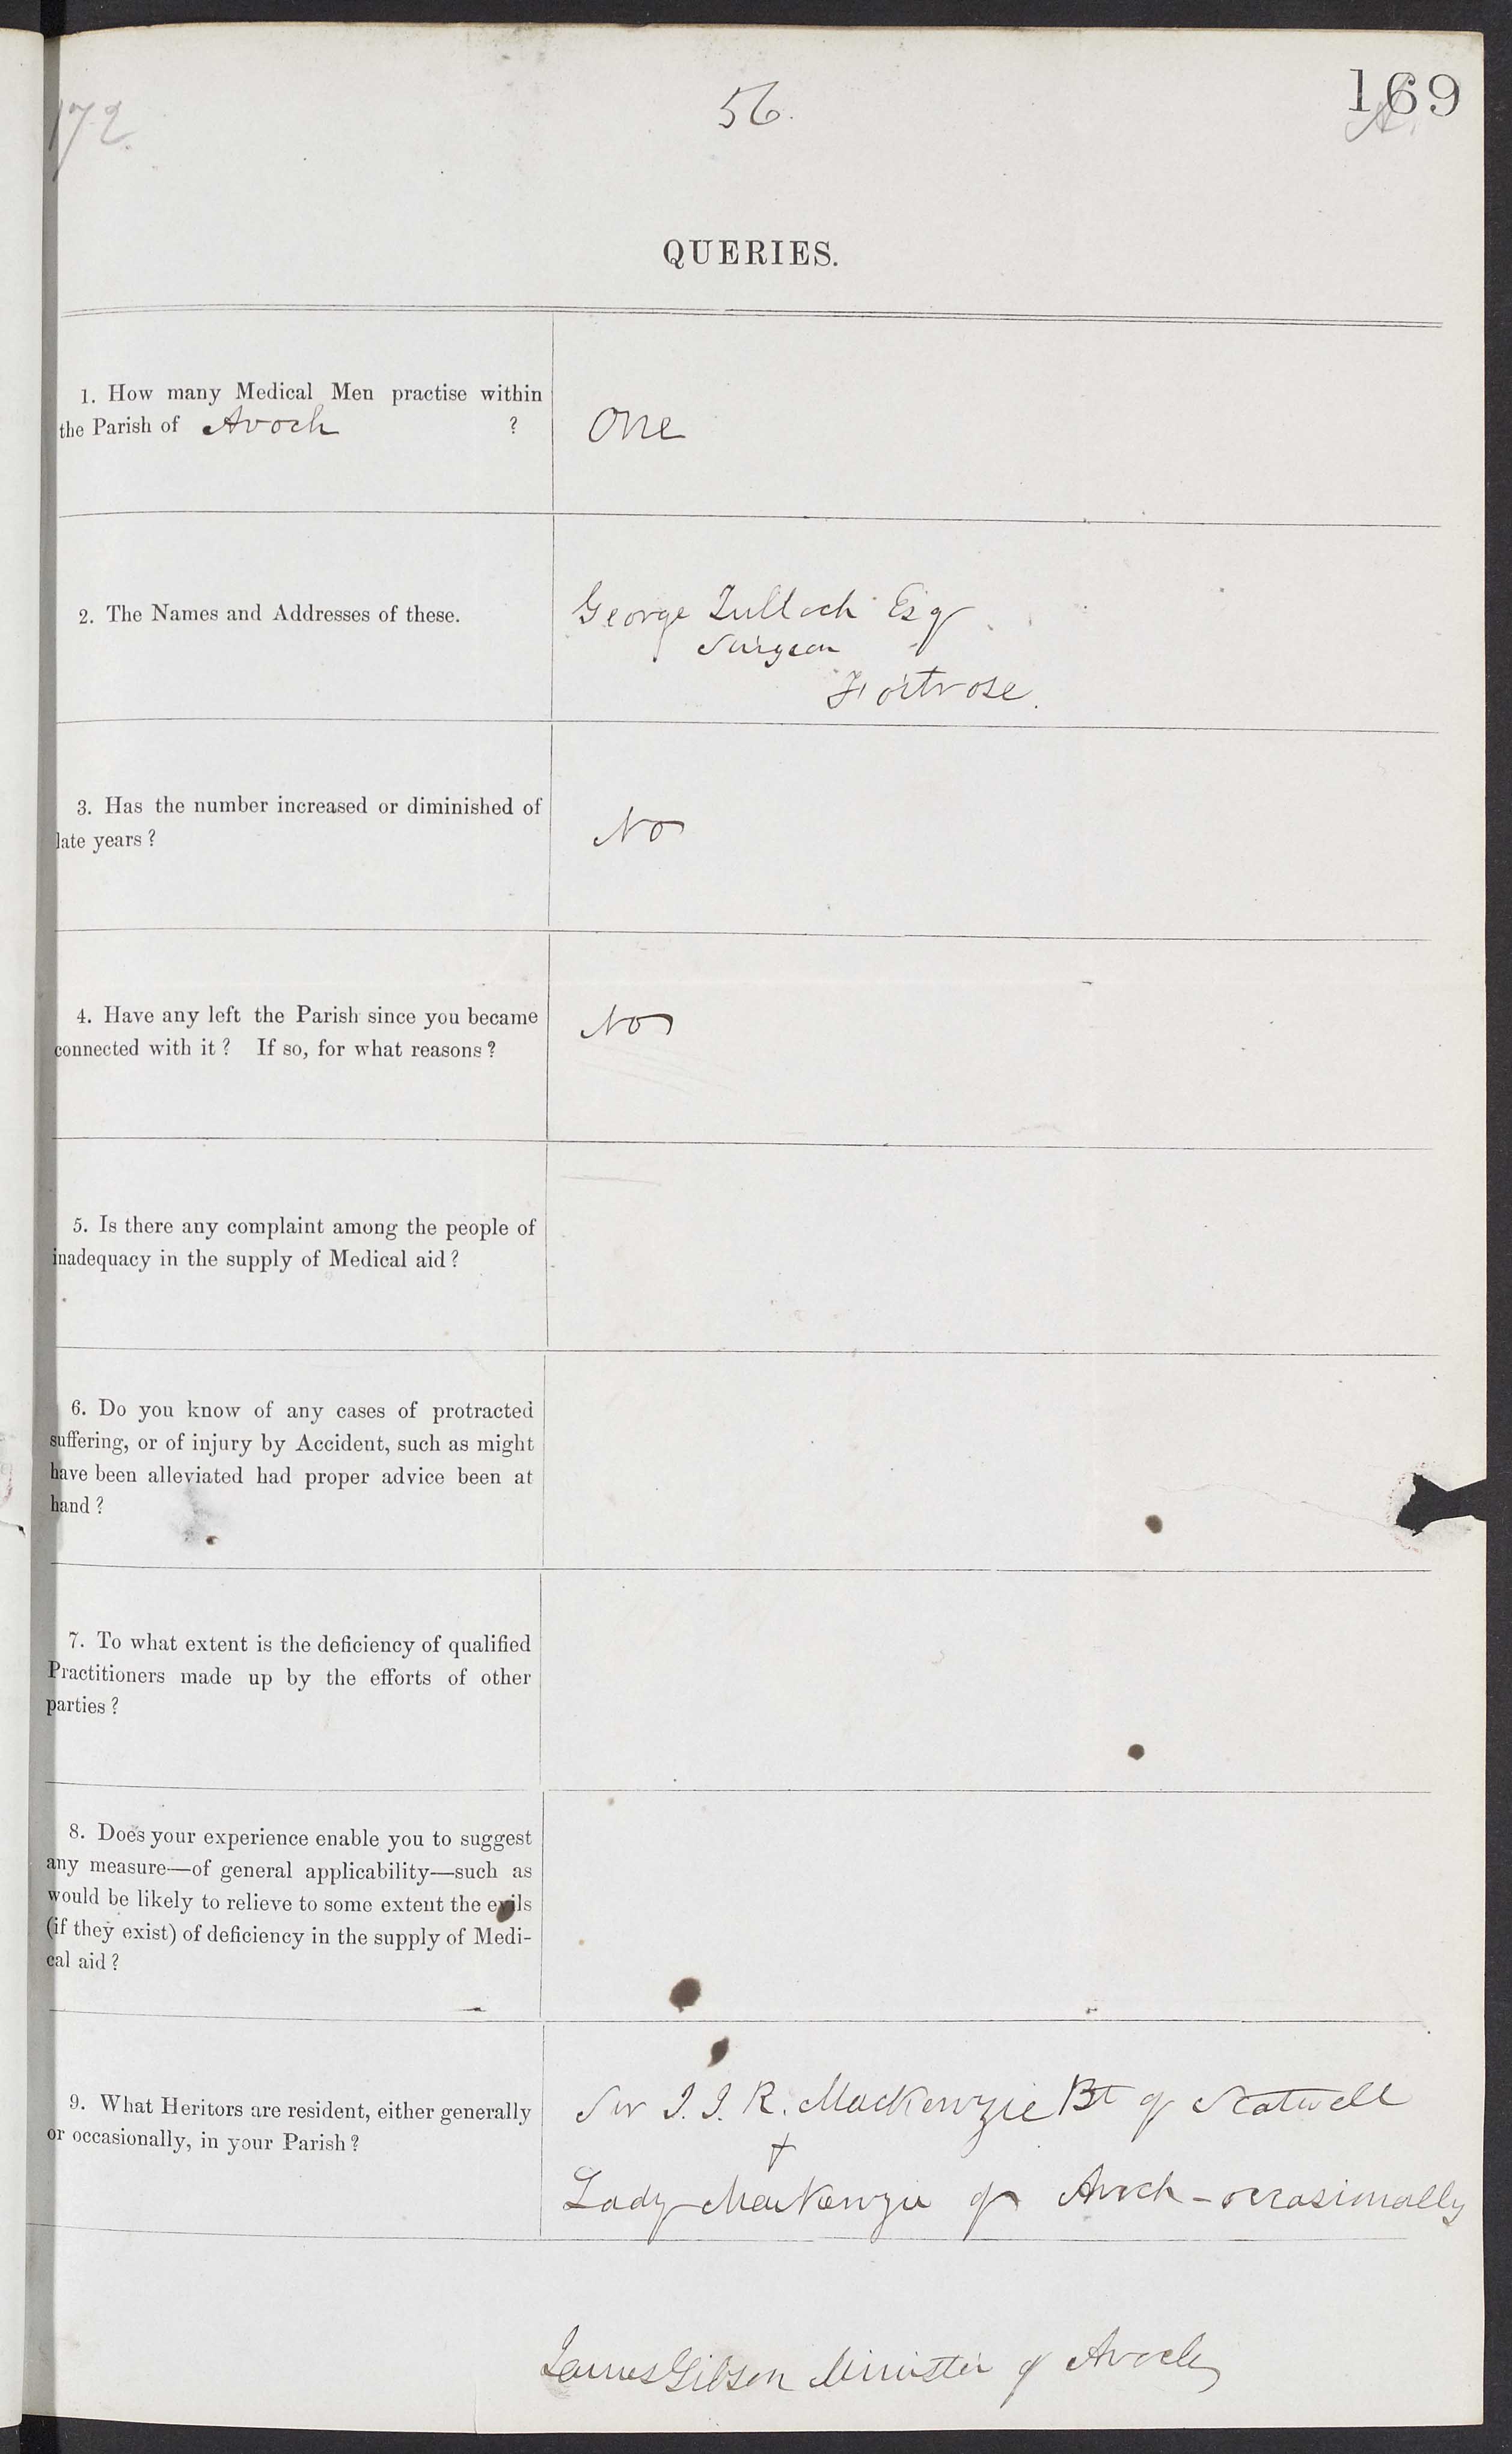 172
56.
169
QUERIES.
1. How many Medical Men practise within
the Parish of Avoch ?
One
2. The Names and Addresses of these.
George Tulloch Esqr
Surgeon
Fortrose.
3. Has the number increased or diminished of
late years ?
No
4. Have any left the Parish since you became
connected with it ? If so, for what reasons ?
No
5. Is there any complaint among the people of
inadequacy in the supply of Medical aid ?
6. Do you know of any cases of protracted
suffering, or of injury by Accident, such as might
have been alleviated had proper advice been at
hand ?
7. To what extent is the deficiency of qualified
Practitioners made up by the efforts of other
parties ?
8. Does your experience enable you to suggest
any measure—of general applicability—such as
would be likely to relieve to some extent the evils
(if they exist) of deficiency in the supply of Medi-
cal aid ?
9. What Heritors are resident, either generally
or occasionally, in your Parish ?
Sir J. J. R. MacKenzie Bt of Scatwell
+
Lady MacKenzie of Avoch - occasionally
James Gibson Minister of Avoch